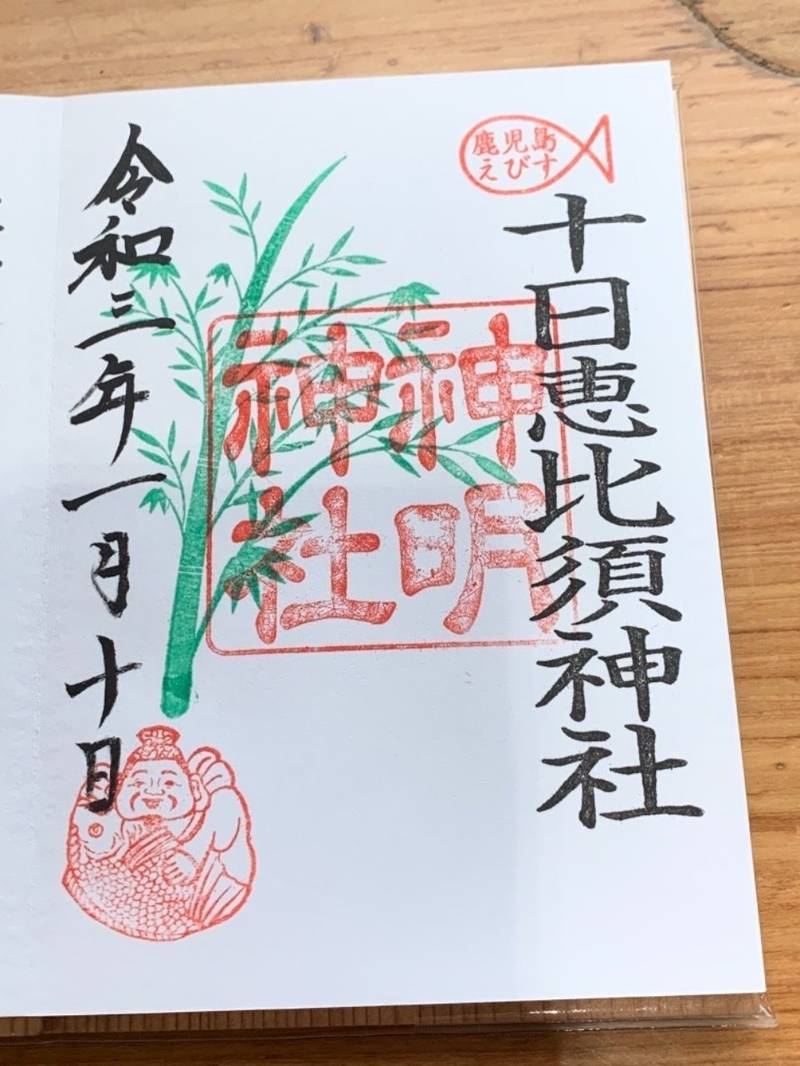 鹿児島
えびす
十日恵比須神社
神明
神社
令和三年一月十日